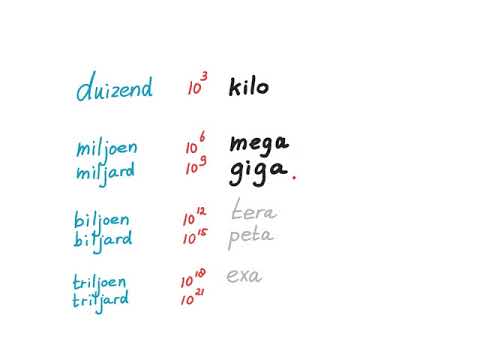 duizend 10³ kilo
miljoen 10⁶ mega
miljard 10⁹ giga.
biljoen 10¹² tera
biljard 10¹⁵ peta
triljoen 10¹⁸ exa
triljard 10²¹